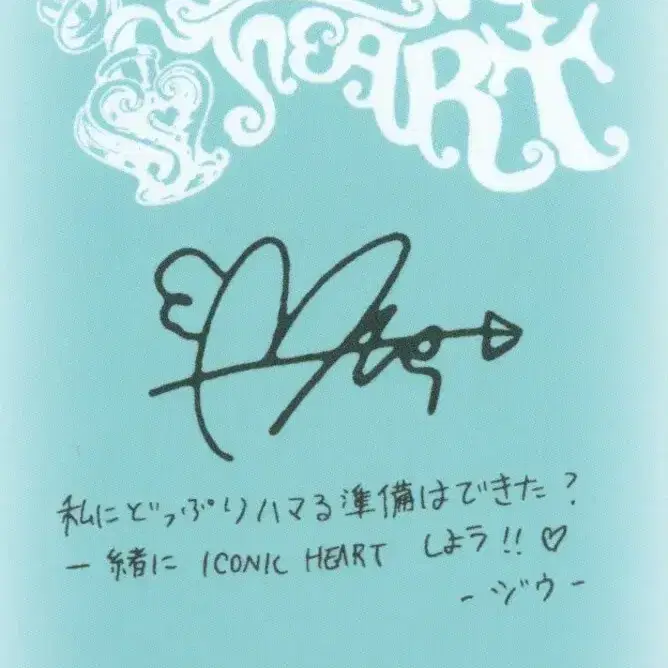 HEART
私にどっぷりハマる準備はできた？
一緒に ICONIC HEART しよう!! ♡
- ジウ -